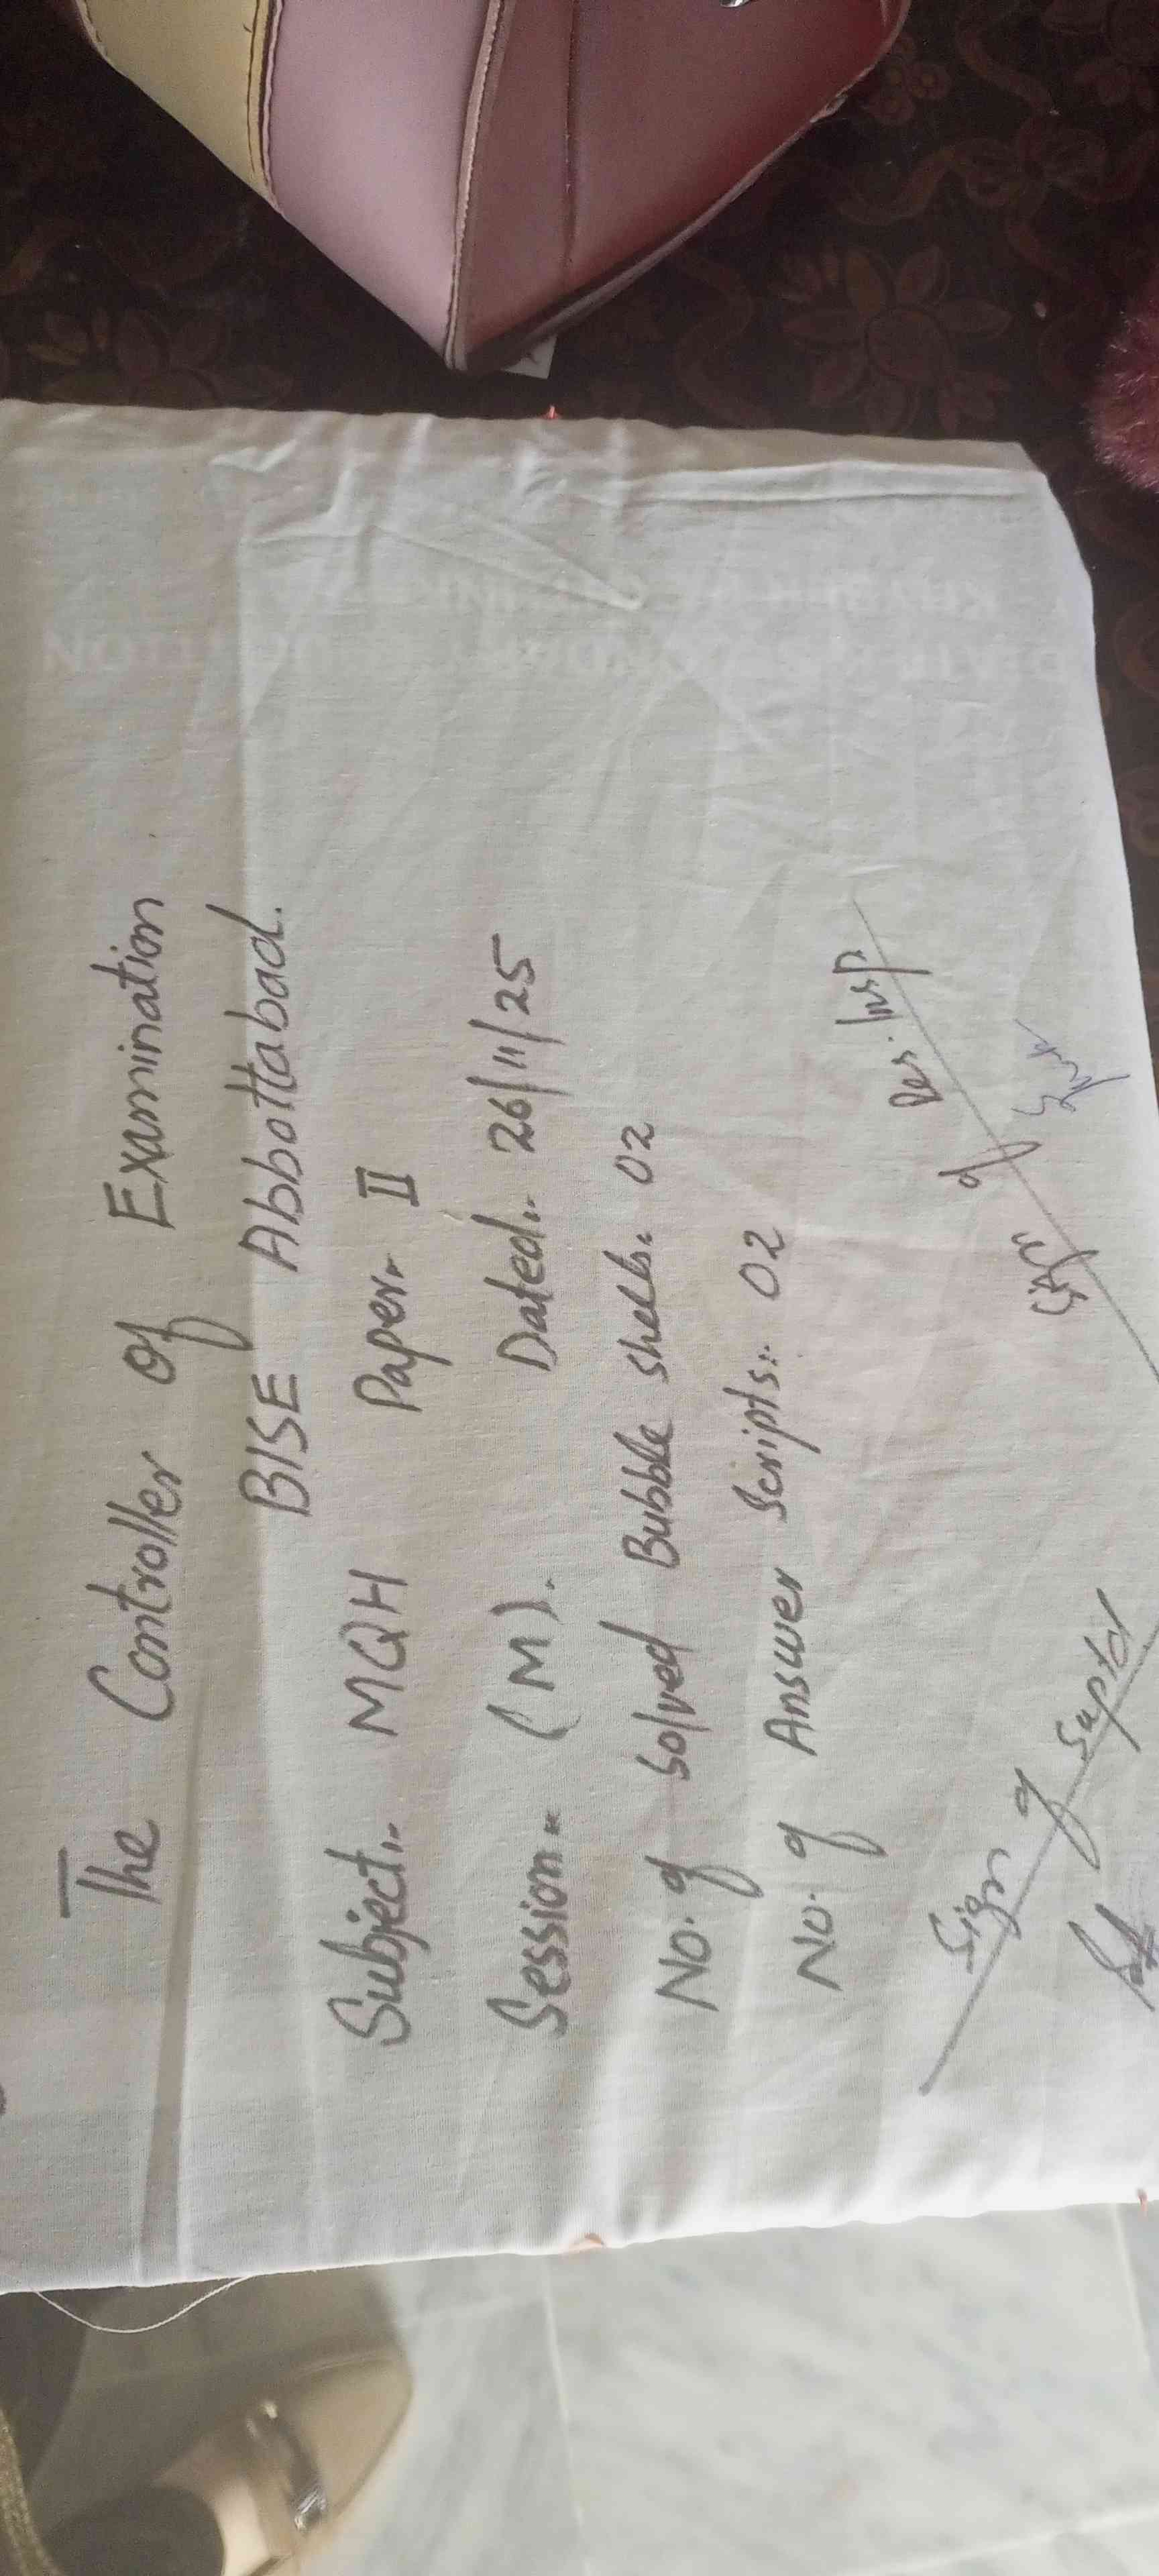 The Controller of Examination
BISE Abbottabad.
Subject:- MQH Paper:- II
Session:- (M). Dated:- 26/11/25
No. of solved Bubble sheets:- 02
No. of Answer Scripts:- 02
Sign of Suptd
Sign of Res. Insp